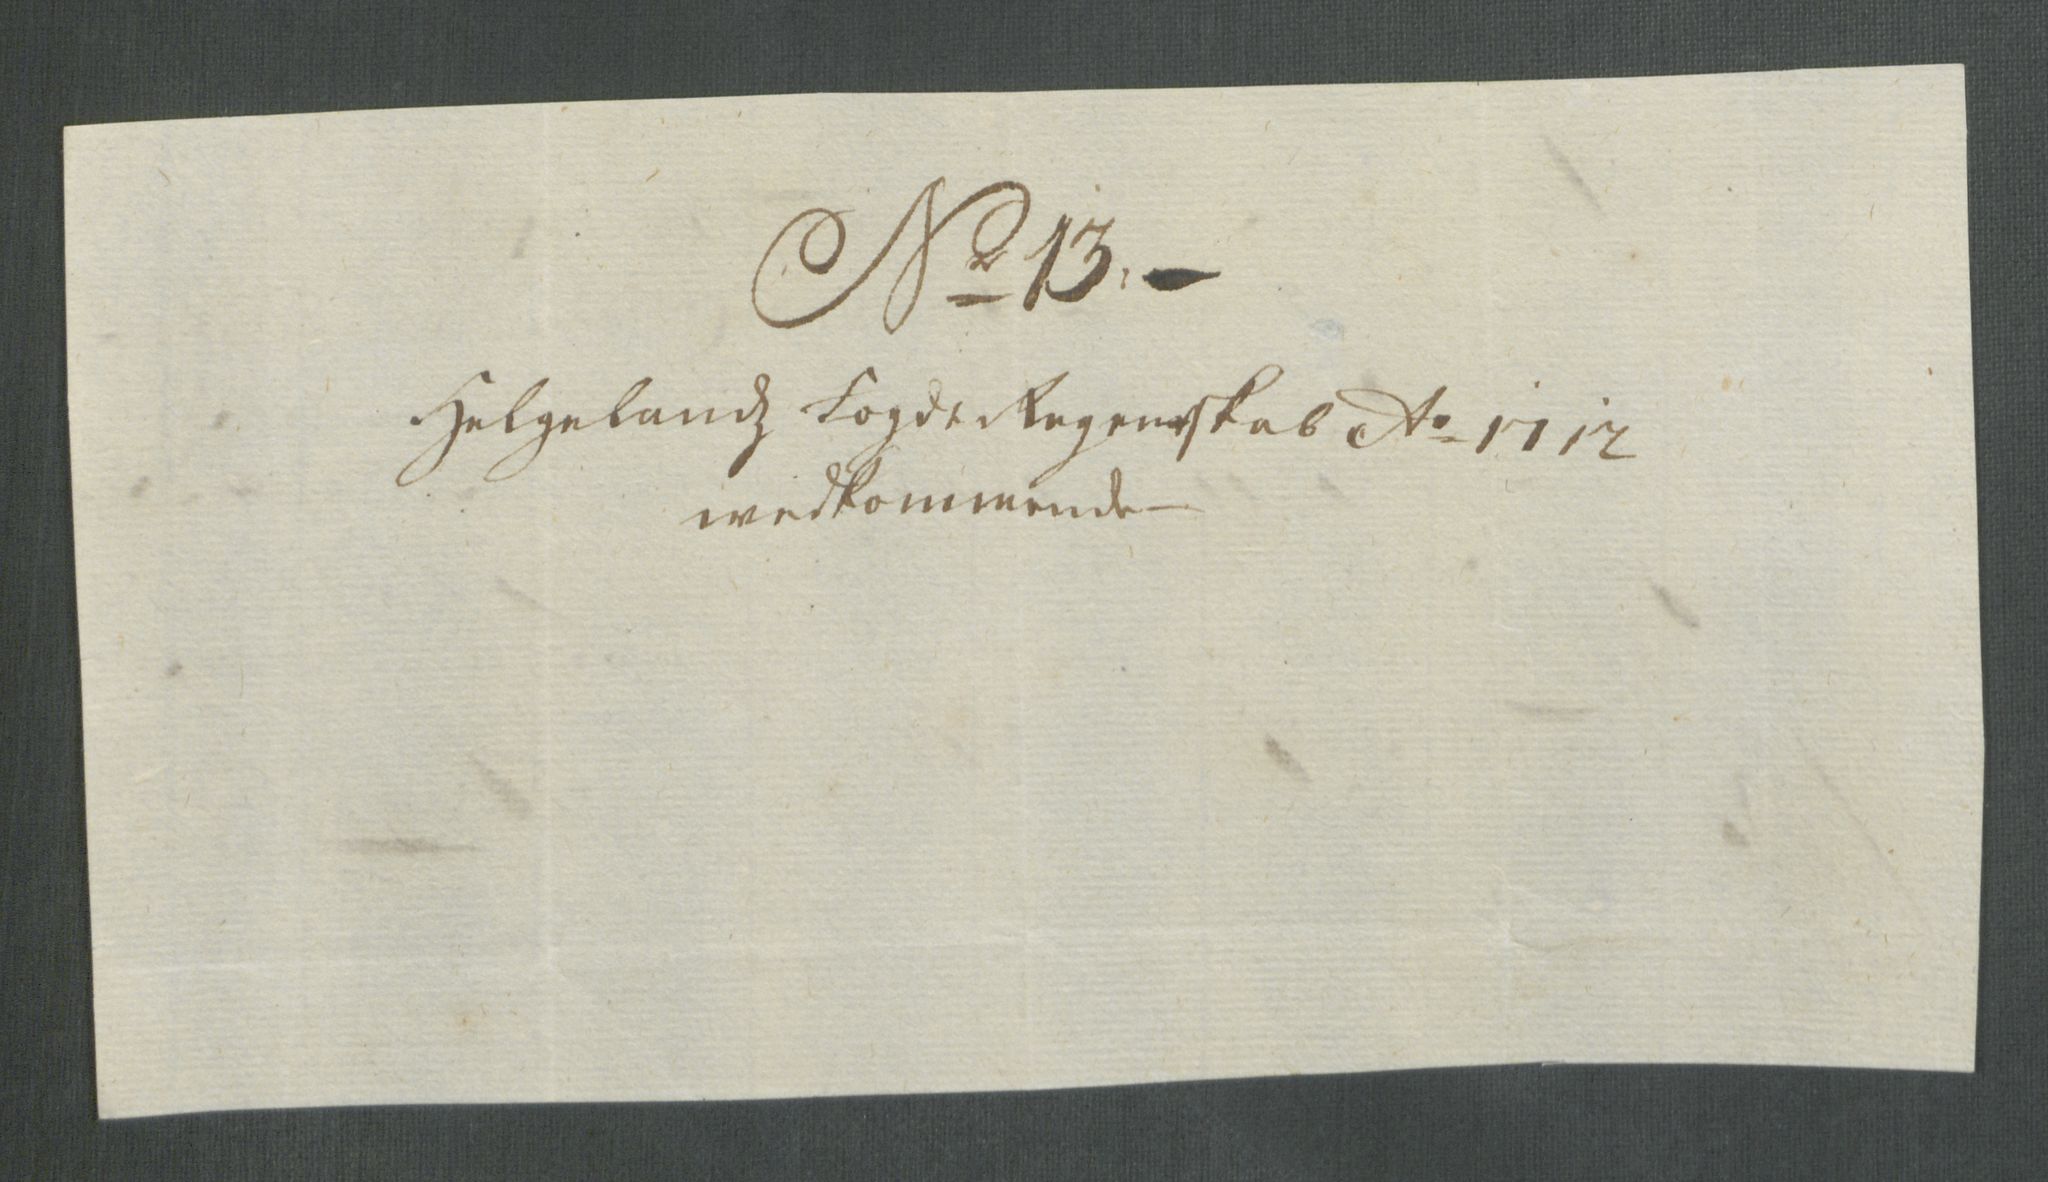 No 13.
Helgelandz Fogde Regenskab Ao 1712
wedkommende